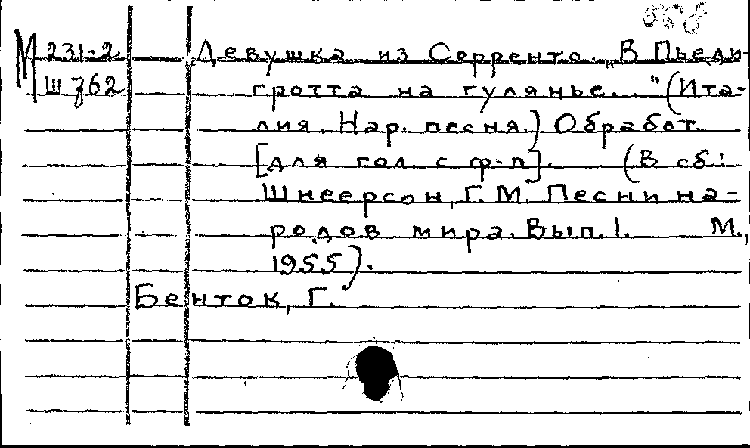 М 231-2 Девушка из Сорренто. „В Пьеди-
Ш 762 гротта на гулянье..." (Ита-
лия. Нар. песня.) Обработ.
[для гол. с ф-п]. (В сб:
Шнеерсон, Г. М. Песни на-
родов мира. Вып. 1. М.,
1955).
Бенток, Г.